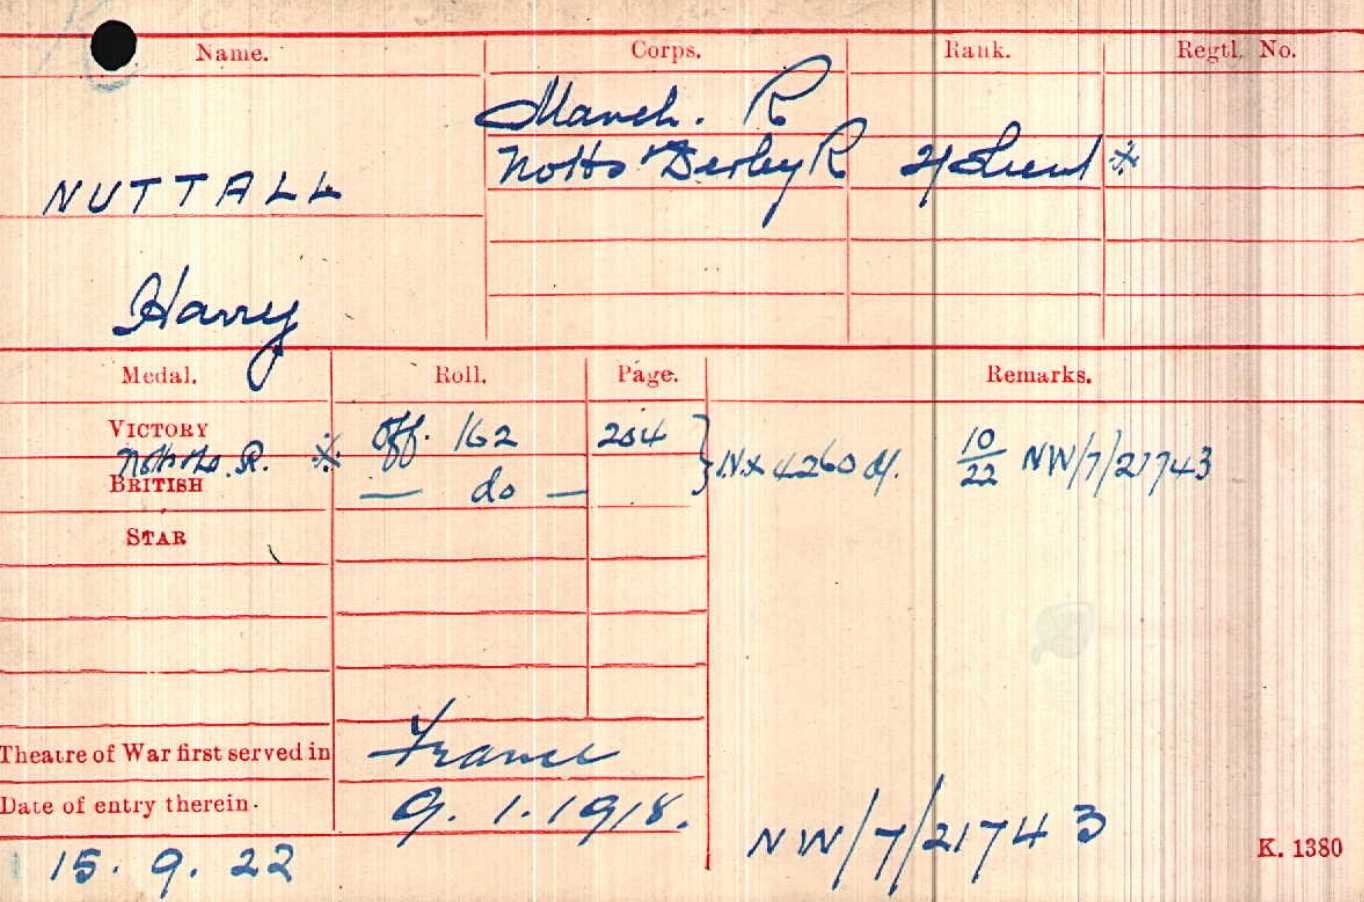 Name. Corps. Rank. Regtl. No.
Manch. R
NUTTALL Notts & Derby R 2/Lieut *
Harry
Medal. Roll. Page. Remarks.
VICTORY Off. 162 204
Notts R. * N.X 4260 10/22 NW/7/21743
BRITISH — do —
STAR
Theatre of War first served in France
Date of entry therein. 9.1.1918.
15.9.22 NW/7/21743
K. 1380